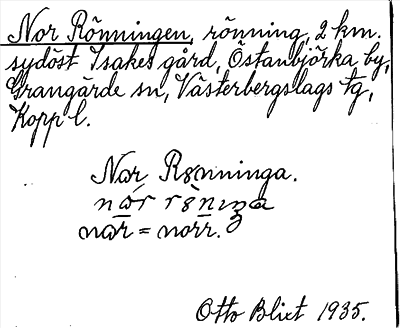 Nor Rönningen, rönning, 2 km.
sydöst Isakes gård, Östanbjörka by,
Grangärde sn, Västerbergslags tg,
Kopp l.
Nor Rønninga.
nor = norr.
Otto Blixt 1935.